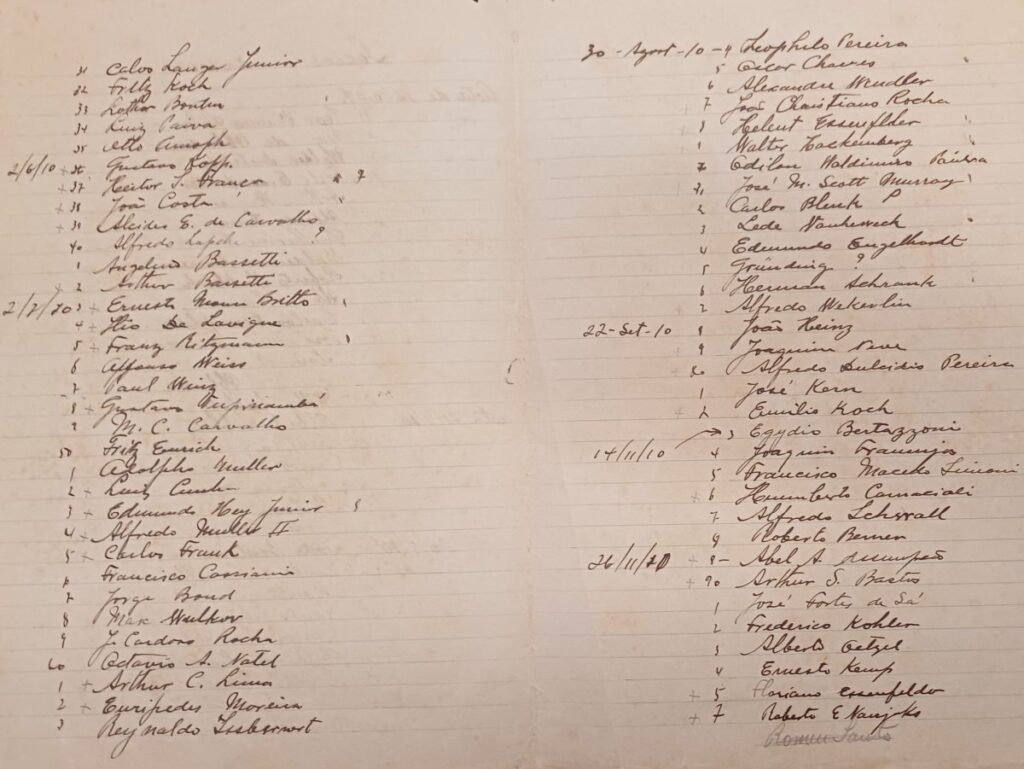 31 Calos Langer Junior
32 Fritz Koch
33 Lothar Bontin
34 Luiz Paiva
35 Otto
2/6/10 + 36. Gustavo Kopp.
+ 37 Heitor S. França " 7
+ 38 João Costa
+ 39 Alcides E. de Carvalho
40 Alfredo ?
1 Angelino Bassetti
+ 2 Arthur Bassetti
3 Ernesto Britto
4 + De Lavigne
5 + Franz Ritzmann
6 Affonso Weiss
7 Paul Winz
8 + Gustavo Tupinambá
9 M. C. Carvalho
50 Fritz Emrich
1 Adolpho Muller
2 + Luiz Cunha
3 + Edmundo Hey Junior
4 + Alfredo Muller II
5 + Carlos Frank
6 Francisco Cassiani
7 Jorge Bond
8 Max Wulkov
9 J. Cardoso Rocha
60 Octavio A. Natel
1 + Arthur C. Lima
2 + Euripedes Moreira
3 Reynaldo
30 - Agost - 10 - 4 Leophilo Pereira
5 Oscar Chaves
6 Alexandre Wendler
7 João Christiano Rocha
8 Helmut Essenfelder
Walter Hackenberg
Odilon Waldimiro
71 José M. Scott Murray
2 Carlos Blenk P
3 Lede
4 Edmundo Engelhardt
5 Gründing ?
6 Herman Schrank
2 Alfredo Wekerlin
22-Set-10 8 João Heinz
9 Joaquim Neve
80 Alfredo Dulcidio Pereira
1 José Kern
+ 2 Emilio Koch
3 Egydio Bertazzoni
14/11/10 4 Joaquim
5 Francisco Macedo
+ 6 Humberto Carnaciali
7 Alfredo Schwall
Roberto Berner
+ 9 - Abel A.
+ 90 Arthur S. Bastos
1 José Fortes de Sá
2 Frederico Kohler
3 Alberto Oetzel
4 Ernesto Kemp
+ 5 Floriano Essenfelder
+ 7 Roberto E